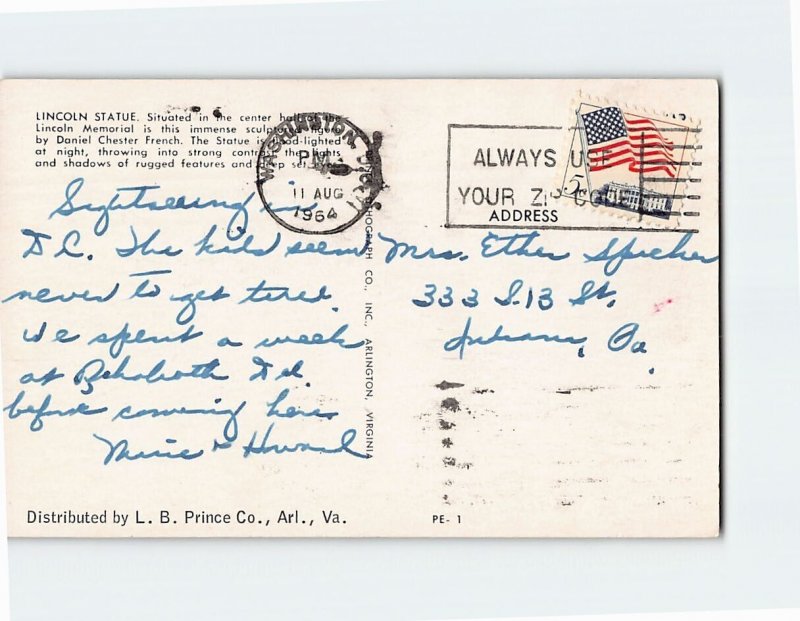 LINCOLN STATUE. Situated in the center hall of the
Lincoln Memorial is this immense sculptured figure
by Daniel Chester French. The Statue is flood-lighted
at night, throwing into strong contrast the lights
and shadows of rugged features and deep set eyes.
WASHINGTON, D.C.
PM
11 AUG
1964
ALWAYS USE
YOUR ZIP CODE
5¢
ADDRESS
Sightseeing in
D.C. The kids seem
never to get tired.
We spent a week
at Rehoboth Del.
before coming here.
& Howard
Mrs. Ether Spicher
333 S. 13 St.
Indiana, Pa.
LITHOGRAPH CO., INC., ARLINGTON, VIRGINIA
Distributed by L. B. Prince Co., Arl., Va.
PE- 1